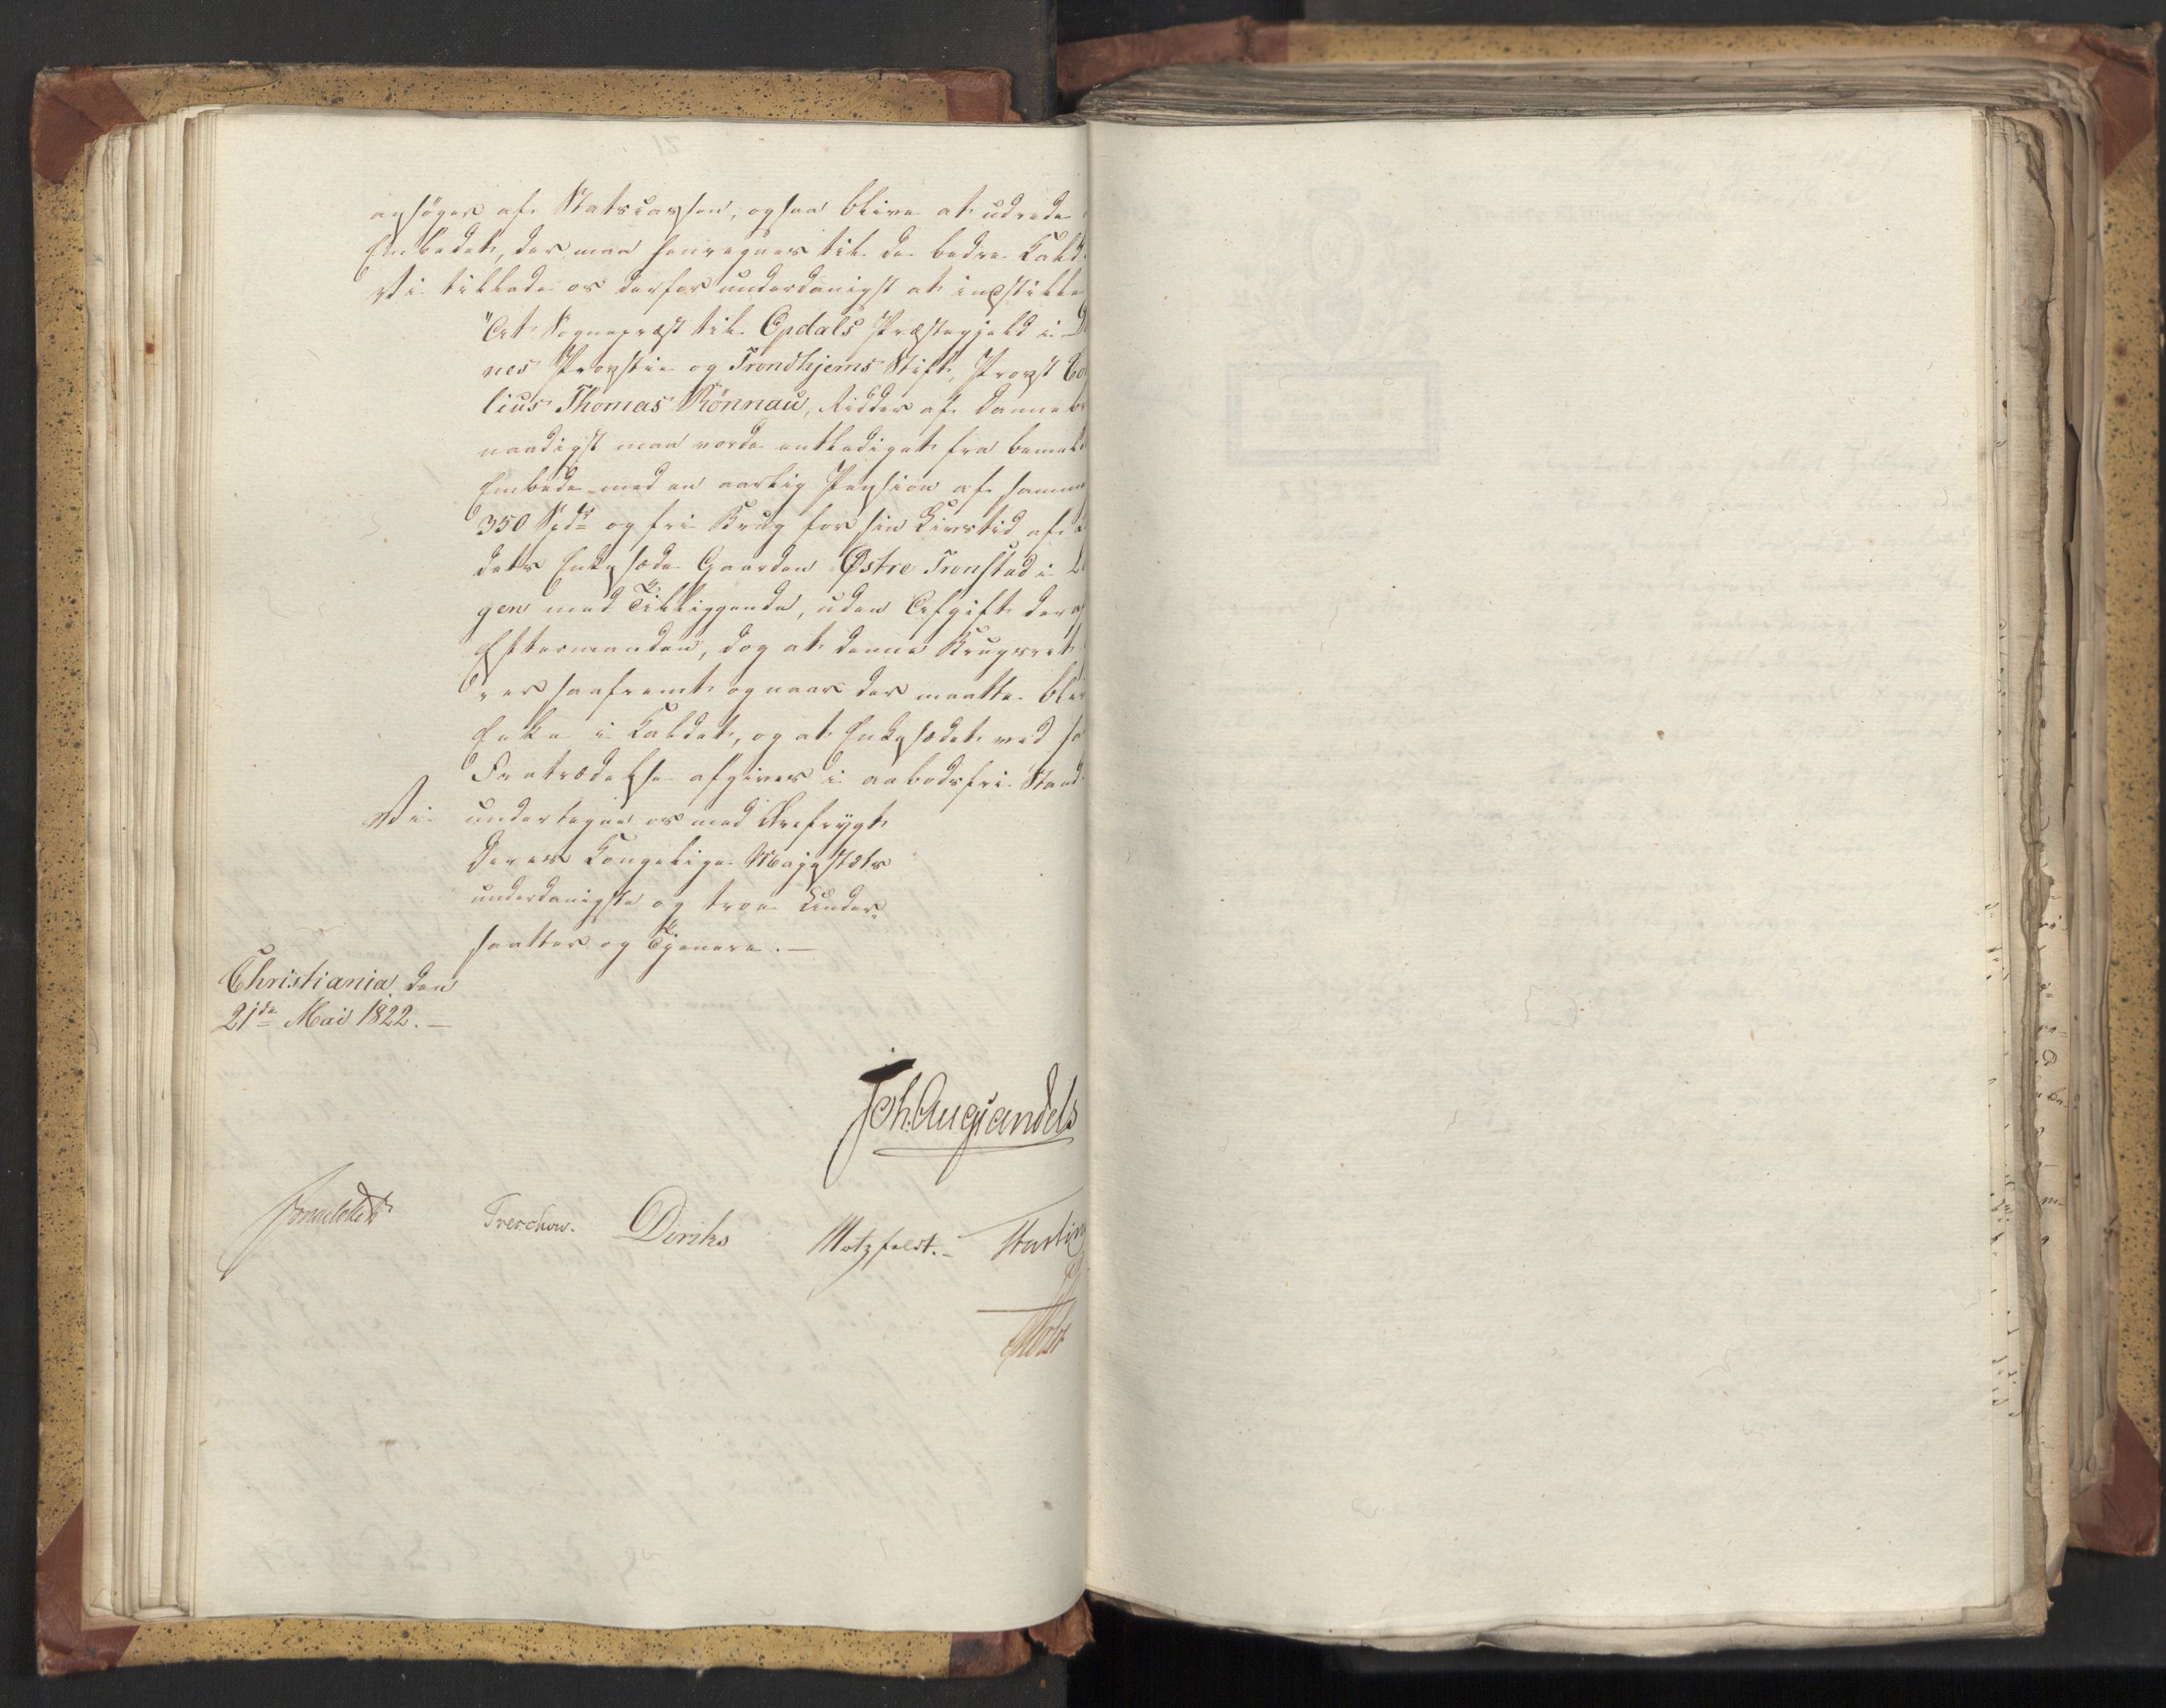 ansöges af Statscassen, ogsaa blive at udrede
Embedet, der maa henregnes til de bedre Kald.
Vi tillade os derfor underdanigst at indstille
"At Sognepræst til Opdals Præstegjeld i D
nes Provstie og Trondhjems Stift, Provst Co
lius Thomas Rönnau, Ridder af Danneb
naadigst maa vorde entlediget fra bemel
Embede med en aarlig Pension af samme
350 Spdr og fri Brug for sin Livstid af
dets Enkesæde Gaarden Østre Tronstad i
gen med Tilliggende, uden Afgift der
Eftermanden, dog at denne Brugsret
er saafremt og naar der maatte bli
Enke i Kaldet, og at Enkesædet ved
Fratrædelse afgives i aabodsfri Stand
Vi undertegne os med Ærefrygt
Deres Kongelige Majestæts
underdanigste og troe Under-
saatter og Tjenere. —
Christiania den
21de Mai 1822. —
Joh: Aug Sandels
Sommehielm Treschow. Diriks Motzfeldt. –
Holst